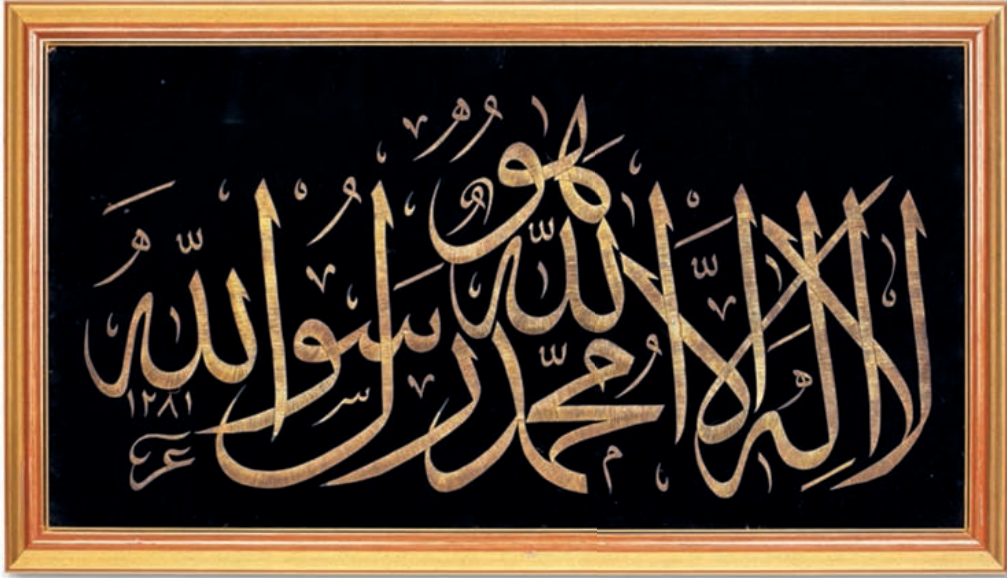 هو
لا اله الا الله محمد رسول الله
١٢٨١